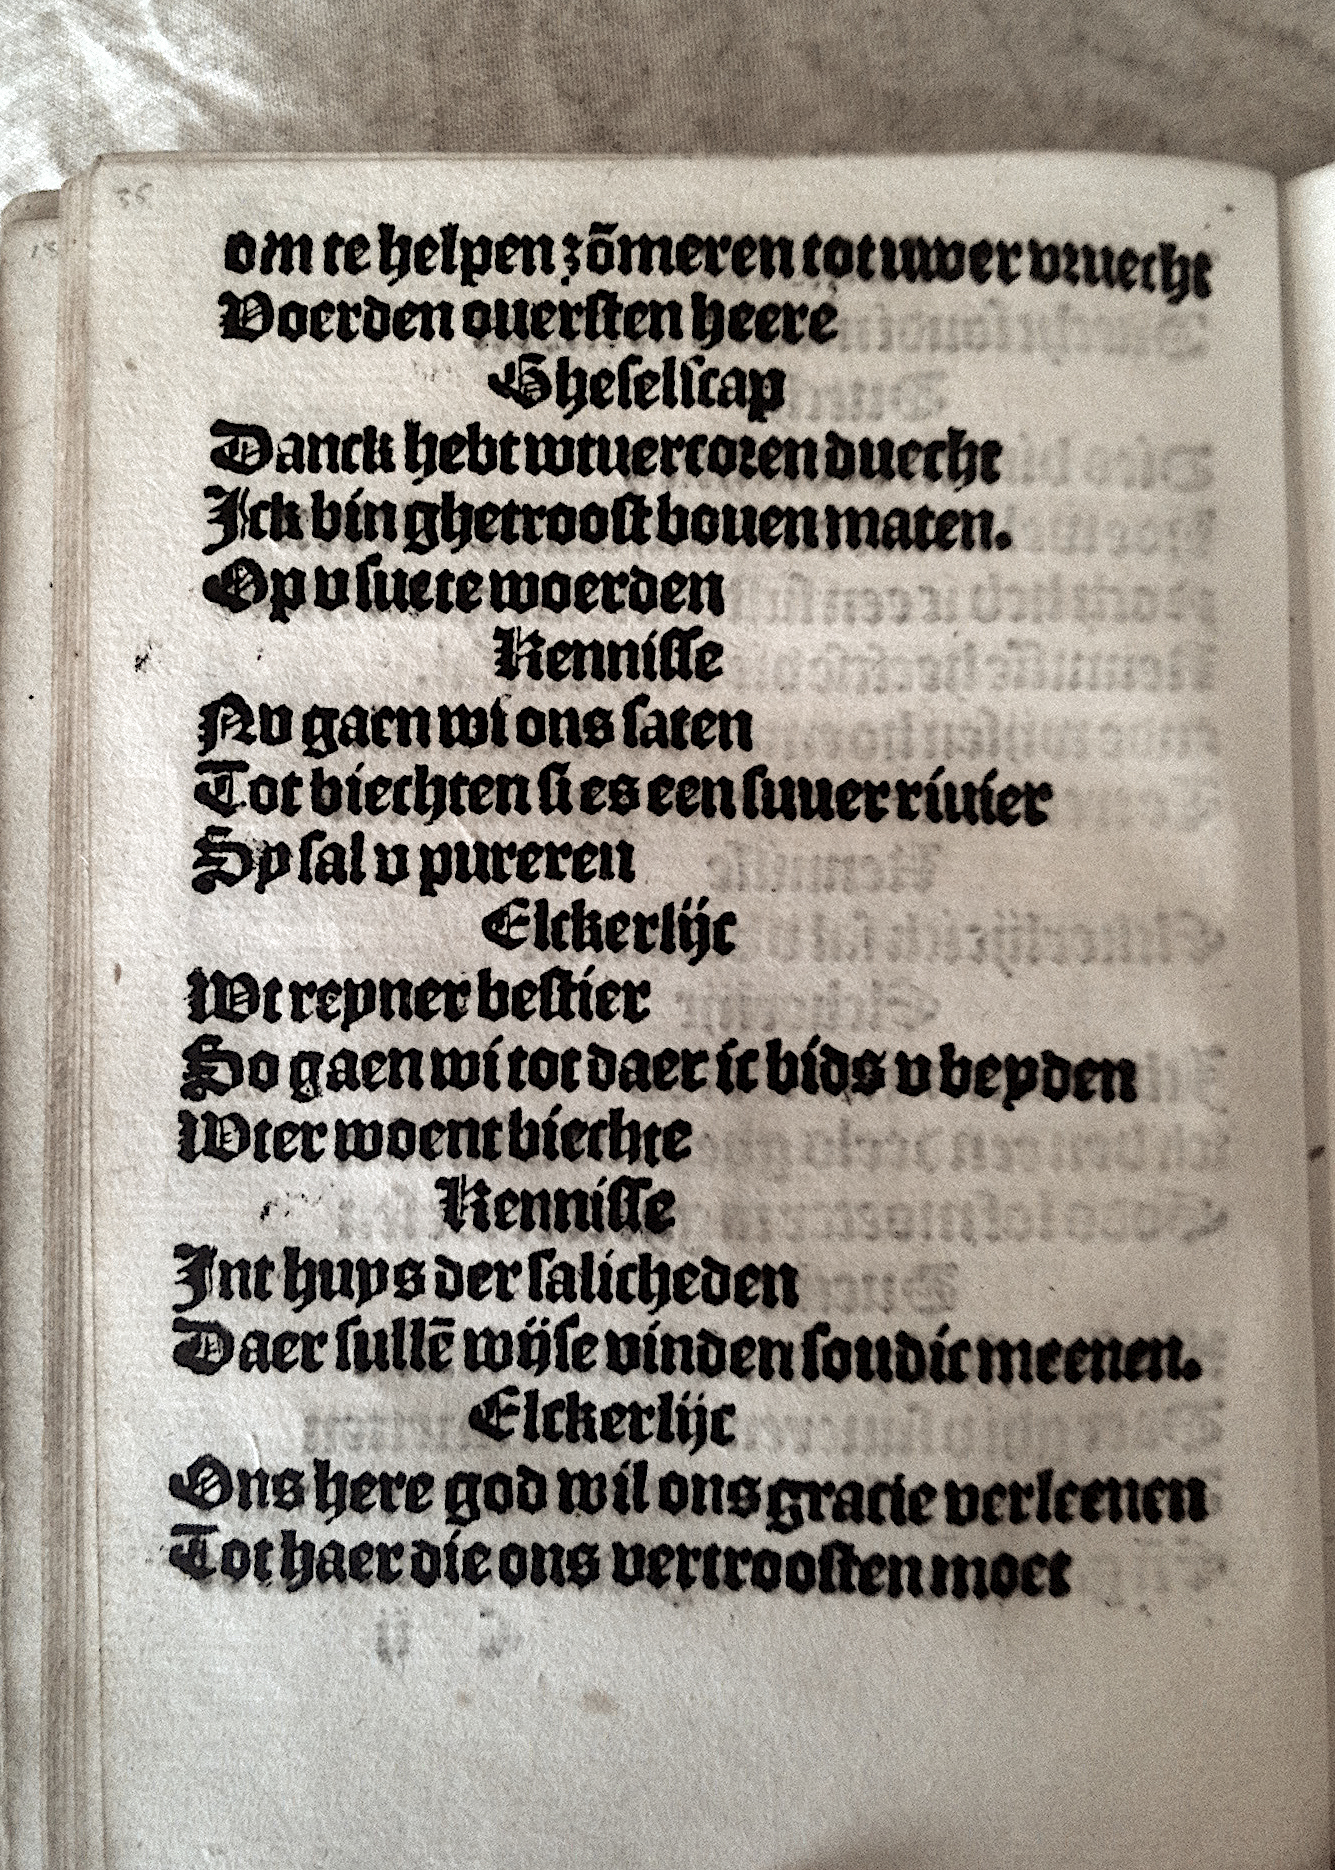 om te helpen zõmeren tot uwer vruecht
Voerden ouersten heere
Gheselscap
Danck hebt wtuercoren duecht
Ick bin ghetroost bouen maten.
Op v suete woerden
Kennisse
Nv gaen wi ons saten
Tot biechten si es een suuer riuier
Sy sal v pureren
Elckerlijc
Wt reyner bestier
So gaen wi tot daer ic bids v beyden
Wter woent biechte
Kennisse
Int huys der salicheden
Daer sullē wijse vinden soudic meenen.
Elckerlijc
Ons here god wil ons gracie verleenen
Tot haer die ons vertroosten moet